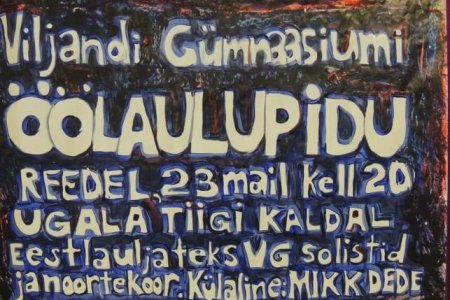 Viljandi Gümnaasiumi
ÖÖLAULUPiDU
REEDEL, 23 mail kell 20
UGALA Tiigi KALDAL
Eestlauljateks VG solistid
ja noortekoor. Külaline: MIKK DEDE